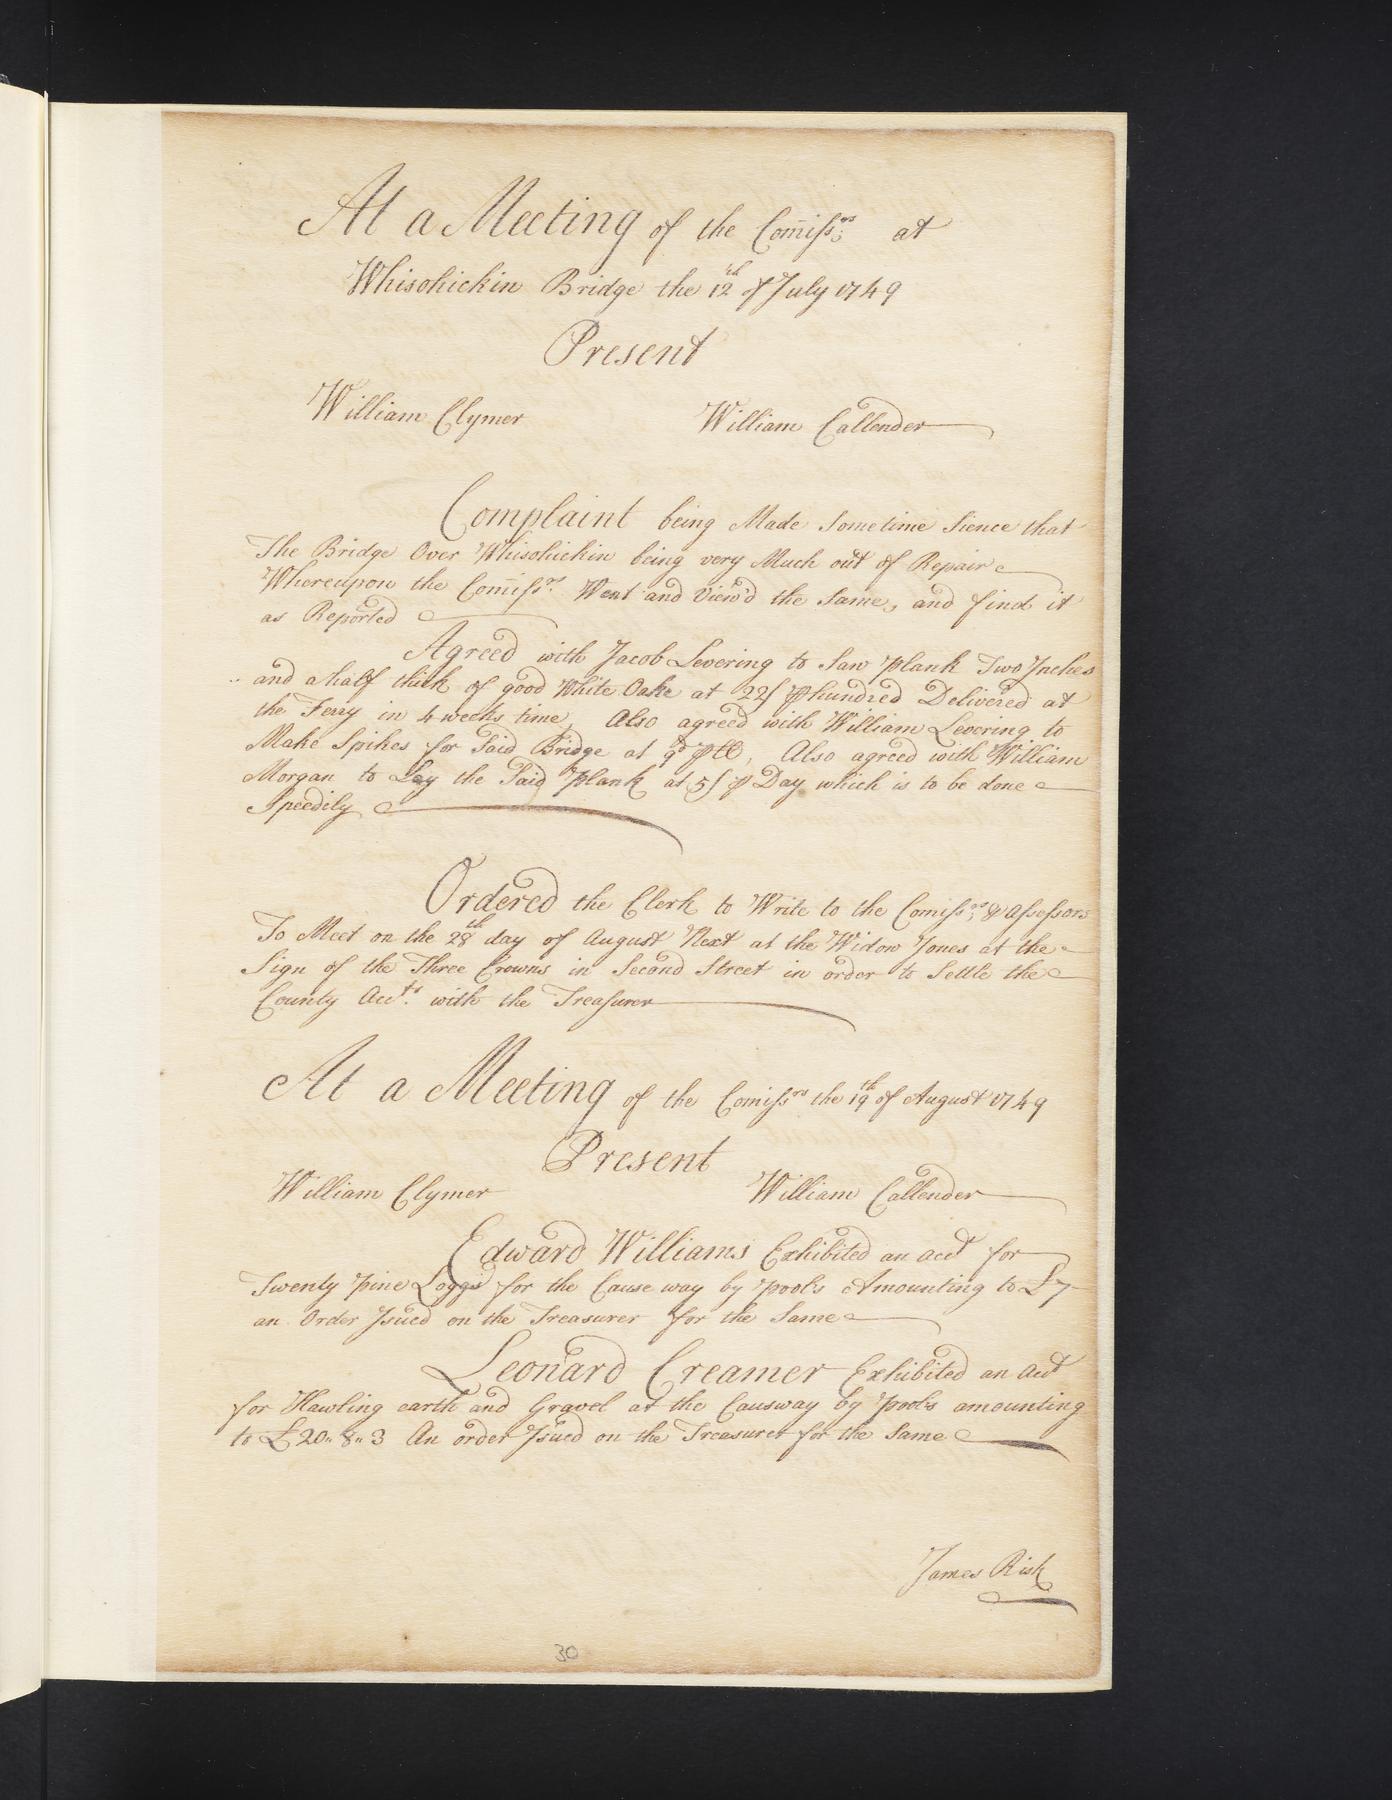 At a Meeting of the Comissrs: at
Whisohickin Bridge the 12th of July 1749
Present
William Clymer William Callender
Complaint being Made Sometime Sience that
The Bridge Over Whisohickin being very Much out of Repair
Whereupon the Comissrs. Went and View'd the Same, and find it
as Reported
Agreed with Jacob Levering to Saw plank Two Inches
and a half thick of good White Oake at 22/ ⅌ hundred Delivered at
the Ferry in 4 weeks time, Also agreed with William Levering to
Make Spikes for Said Bridge at 9d ⅌ lb, Also agreed with William
Morgan to Lay the Said plank at 5/ ⅌ Day which is to be done
Speedily
Ordered the Clerk to Write to the Comissrs: & Assessors
To Meet on the 28th day of August Next at the Widow Jones at the
Sign of the Three Crowns in Second Street in order to Settle the
County Accts. with the Treasurer
At a Meeting of the Comissrs the 19th of August 1749
Present
William Clymer William Callender
Edward Williams Exhibited an acct for
Twenty pine Loggs for the Cause way by pool's Amounting to £7
an Order Isued on the Treasurer for the Same
Leonard Creamer Exhibited an acct
for Hawling earth and Gravel at the Causway by pools amounting
to £20"8"3 An order Isued on the Treasurer for the Same
James Risk
30